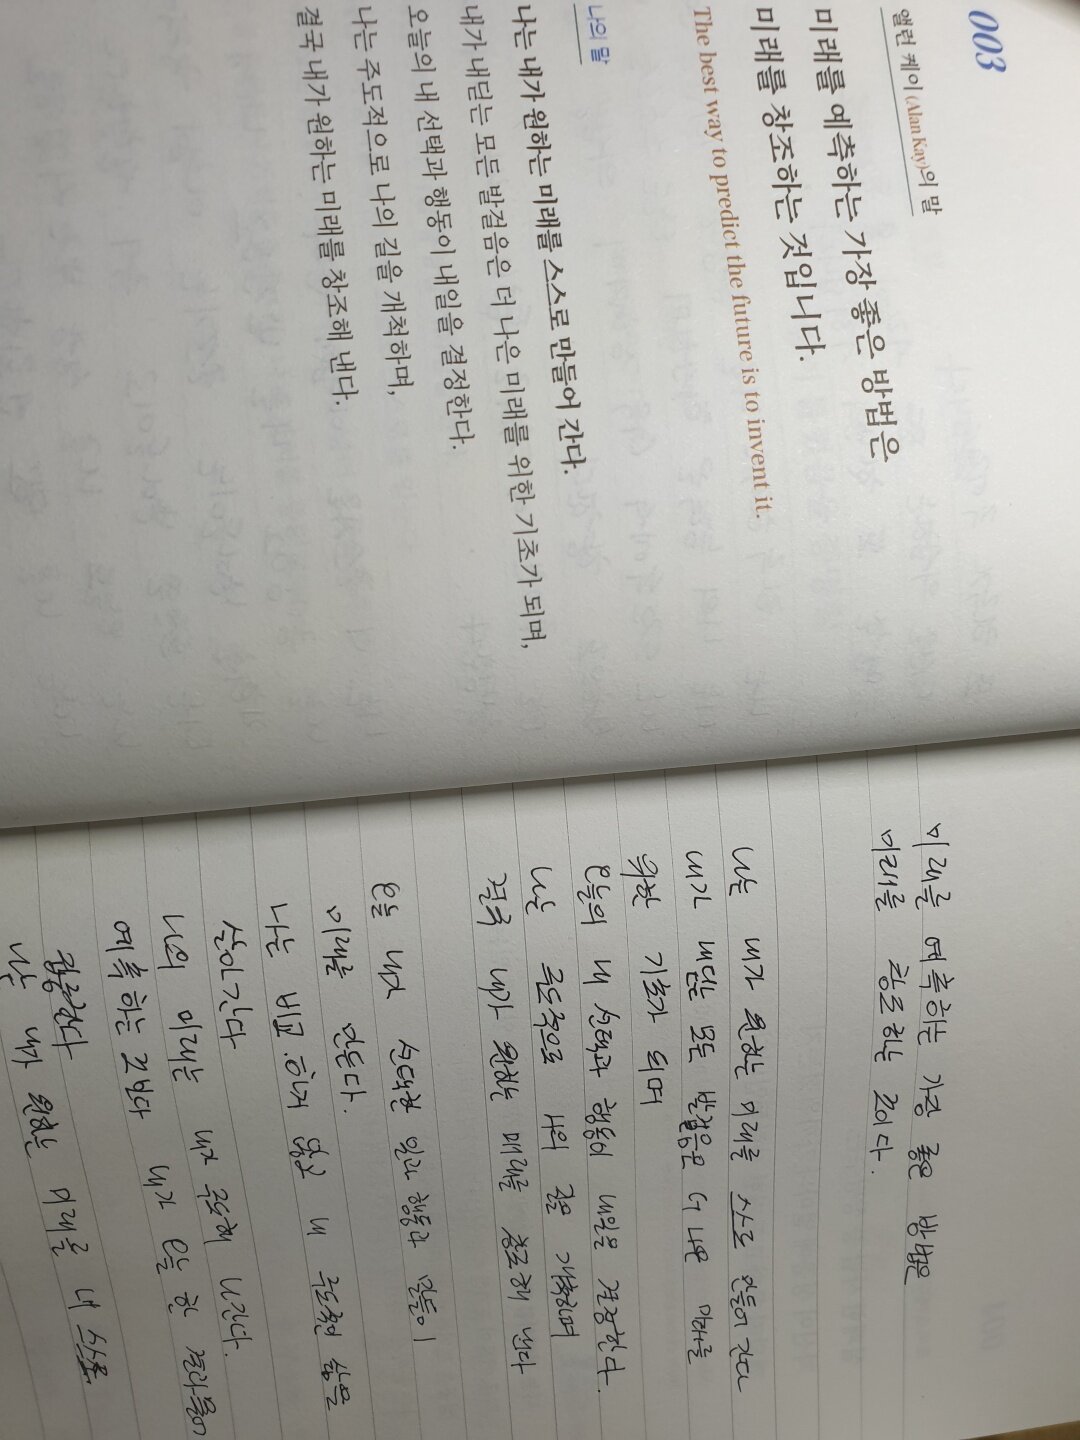 003
앨런 케이(Alan Kay)의 말
미래를 예측하는 가장 좋은 방법은
미래를 창조하는 것입니다.
The best way to predict the future is to invent it.
나의 말
나는 내가 원하는 미래를 스스로 만들어 간다.
내가 내딛는 모든 발걸음은 더 나은 미래를 위한 기초가 되며,
오늘의 내 선택과 행동이 내일을 결정한다.
나는 주도적으로 나의 길을 개척하며,
결국 내가 원하는 미래를 창조해 낸다.
미래를 예측하는 가장 좋은 방법은
미래를 창조하는 것이다.
나는 내가 원하는 미래를 스스로 만들어 간다
내가 내딛는 모든 발걸음은 더 나은 미래를
위한 기초가 되며
오늘의 내 선택과 행동이 내일을 결정한다.
나는 주도적으로 나의 길을 개척하며
결국 내가 원하는 미래를 창조해 낸다
오늘 내가 선택한 일과 행동과 말들이
미래를 만든다.
나는 비교하지 않고 내 주도적인 삶을
살아간다
나의 미래는 내가 나간다.
예측하는 것보다 내가 오늘 한 결과물이
나는 내가 원하는 미래를 내 스스로